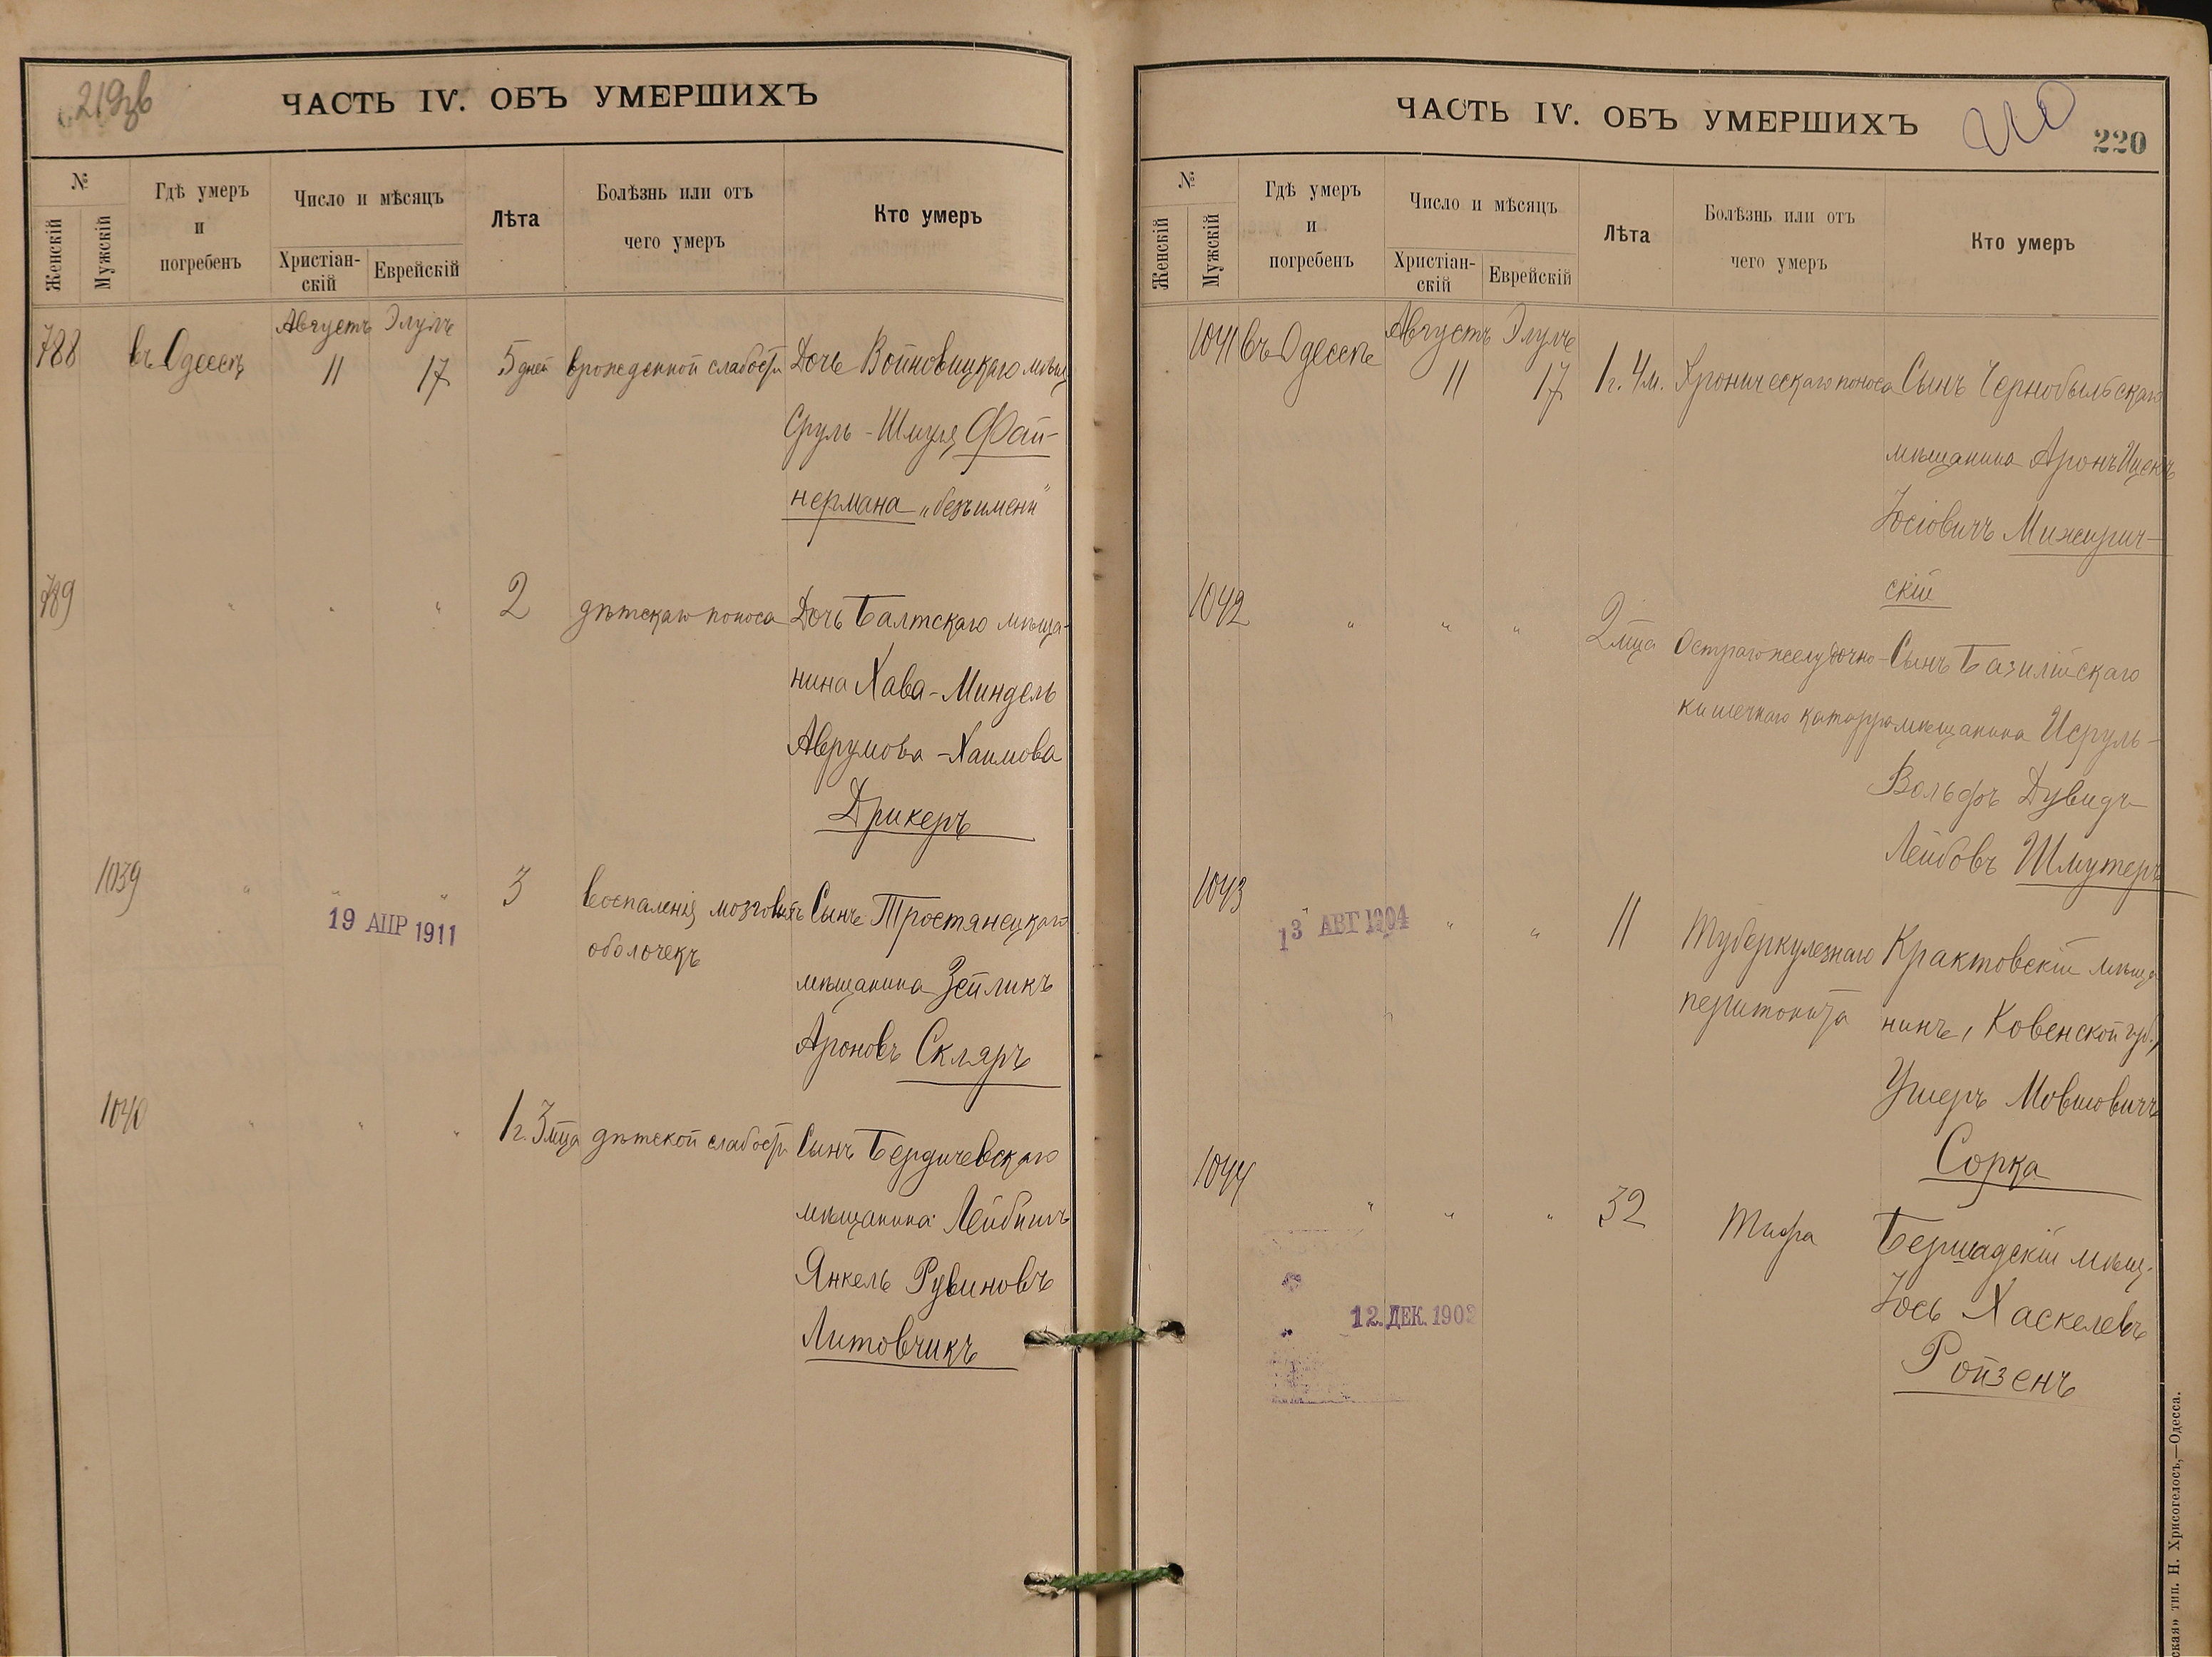 219зв
ЧАСТЬ IV. ОБЪ УМЕРШИХЪ
№
Женскій
Мужскій
Гдѣ умеръ
и
погребенъ
Число и мѣсяцъ
Христіан-
скій
Еврейскій
Лѣта
Болѣзнь или отъ
чего умеръ
Кто умеръ
Августъ Элулъ
788 въ Одессѣ 11 17 5 дней врожденной слабости Дочь Войновицкаго мѣщ
Сруль-Шмуля Фай-
нермана „безъ имени"
789 " " " 2 дѣтскаго поноса Дочь Балтскаго мѣща-
нина Хава-Миндель
Аврумова-Хаимова
Дрикеръ
1039 " " " 3 воспаленія мозговыхъ Сынъ Тростянецкаго
19 АПР 1911
оболочекъ
мѣщанина Зейликъ
Ароновъ Скляръ
1040 " " " 1 г. 3 мца дѣтской слабости Сынъ Бердичевскаго
мѣщанина Лейбишъ
Янкель Рувиновъ
Литовчикъ
ЧАСТЬ IV. ОБЪ УМЕРШИХЪ
220
№
Женскій
Мужскій
Гдѣ умеръ
и
погребенъ
Число и мѣсяцъ
Христіан-
скій
Еврейскій
Лѣта
Болѣзнь или отъ
чего умеръ
Кто умеръ
Августъ Элулъ
1041 въ Одессѣ 11 17 1 г. 4 м. Хроническаго поноса Сынъ Чернобыльскаго
мѣщанина Аронъ Ицекъ
Іосіовичъ Мижирич-
скій
1042 " " " 2 мца Остраго желудочно- Сынъ Базилійскаго
кишечнаго катарра мѣщанина Исруль-
Вольфъ Дувидъ-
Лейбовъ Шмутеръ
1043 " " " 11 Туберкулезнаго Крактовскій мѣща
13 АВГ 1904
перитонита нинъ, Ковенской губ.,
Ушеръ Мовшовичъ
Сорка
1044 " " " 32 Тифа Бершадскій мѣщ.
Іось Хаскелевъ
12. ДЕК. 1903
Ройзенъ
ская» тип. Н. Хрисогелосъ,—Одесса.